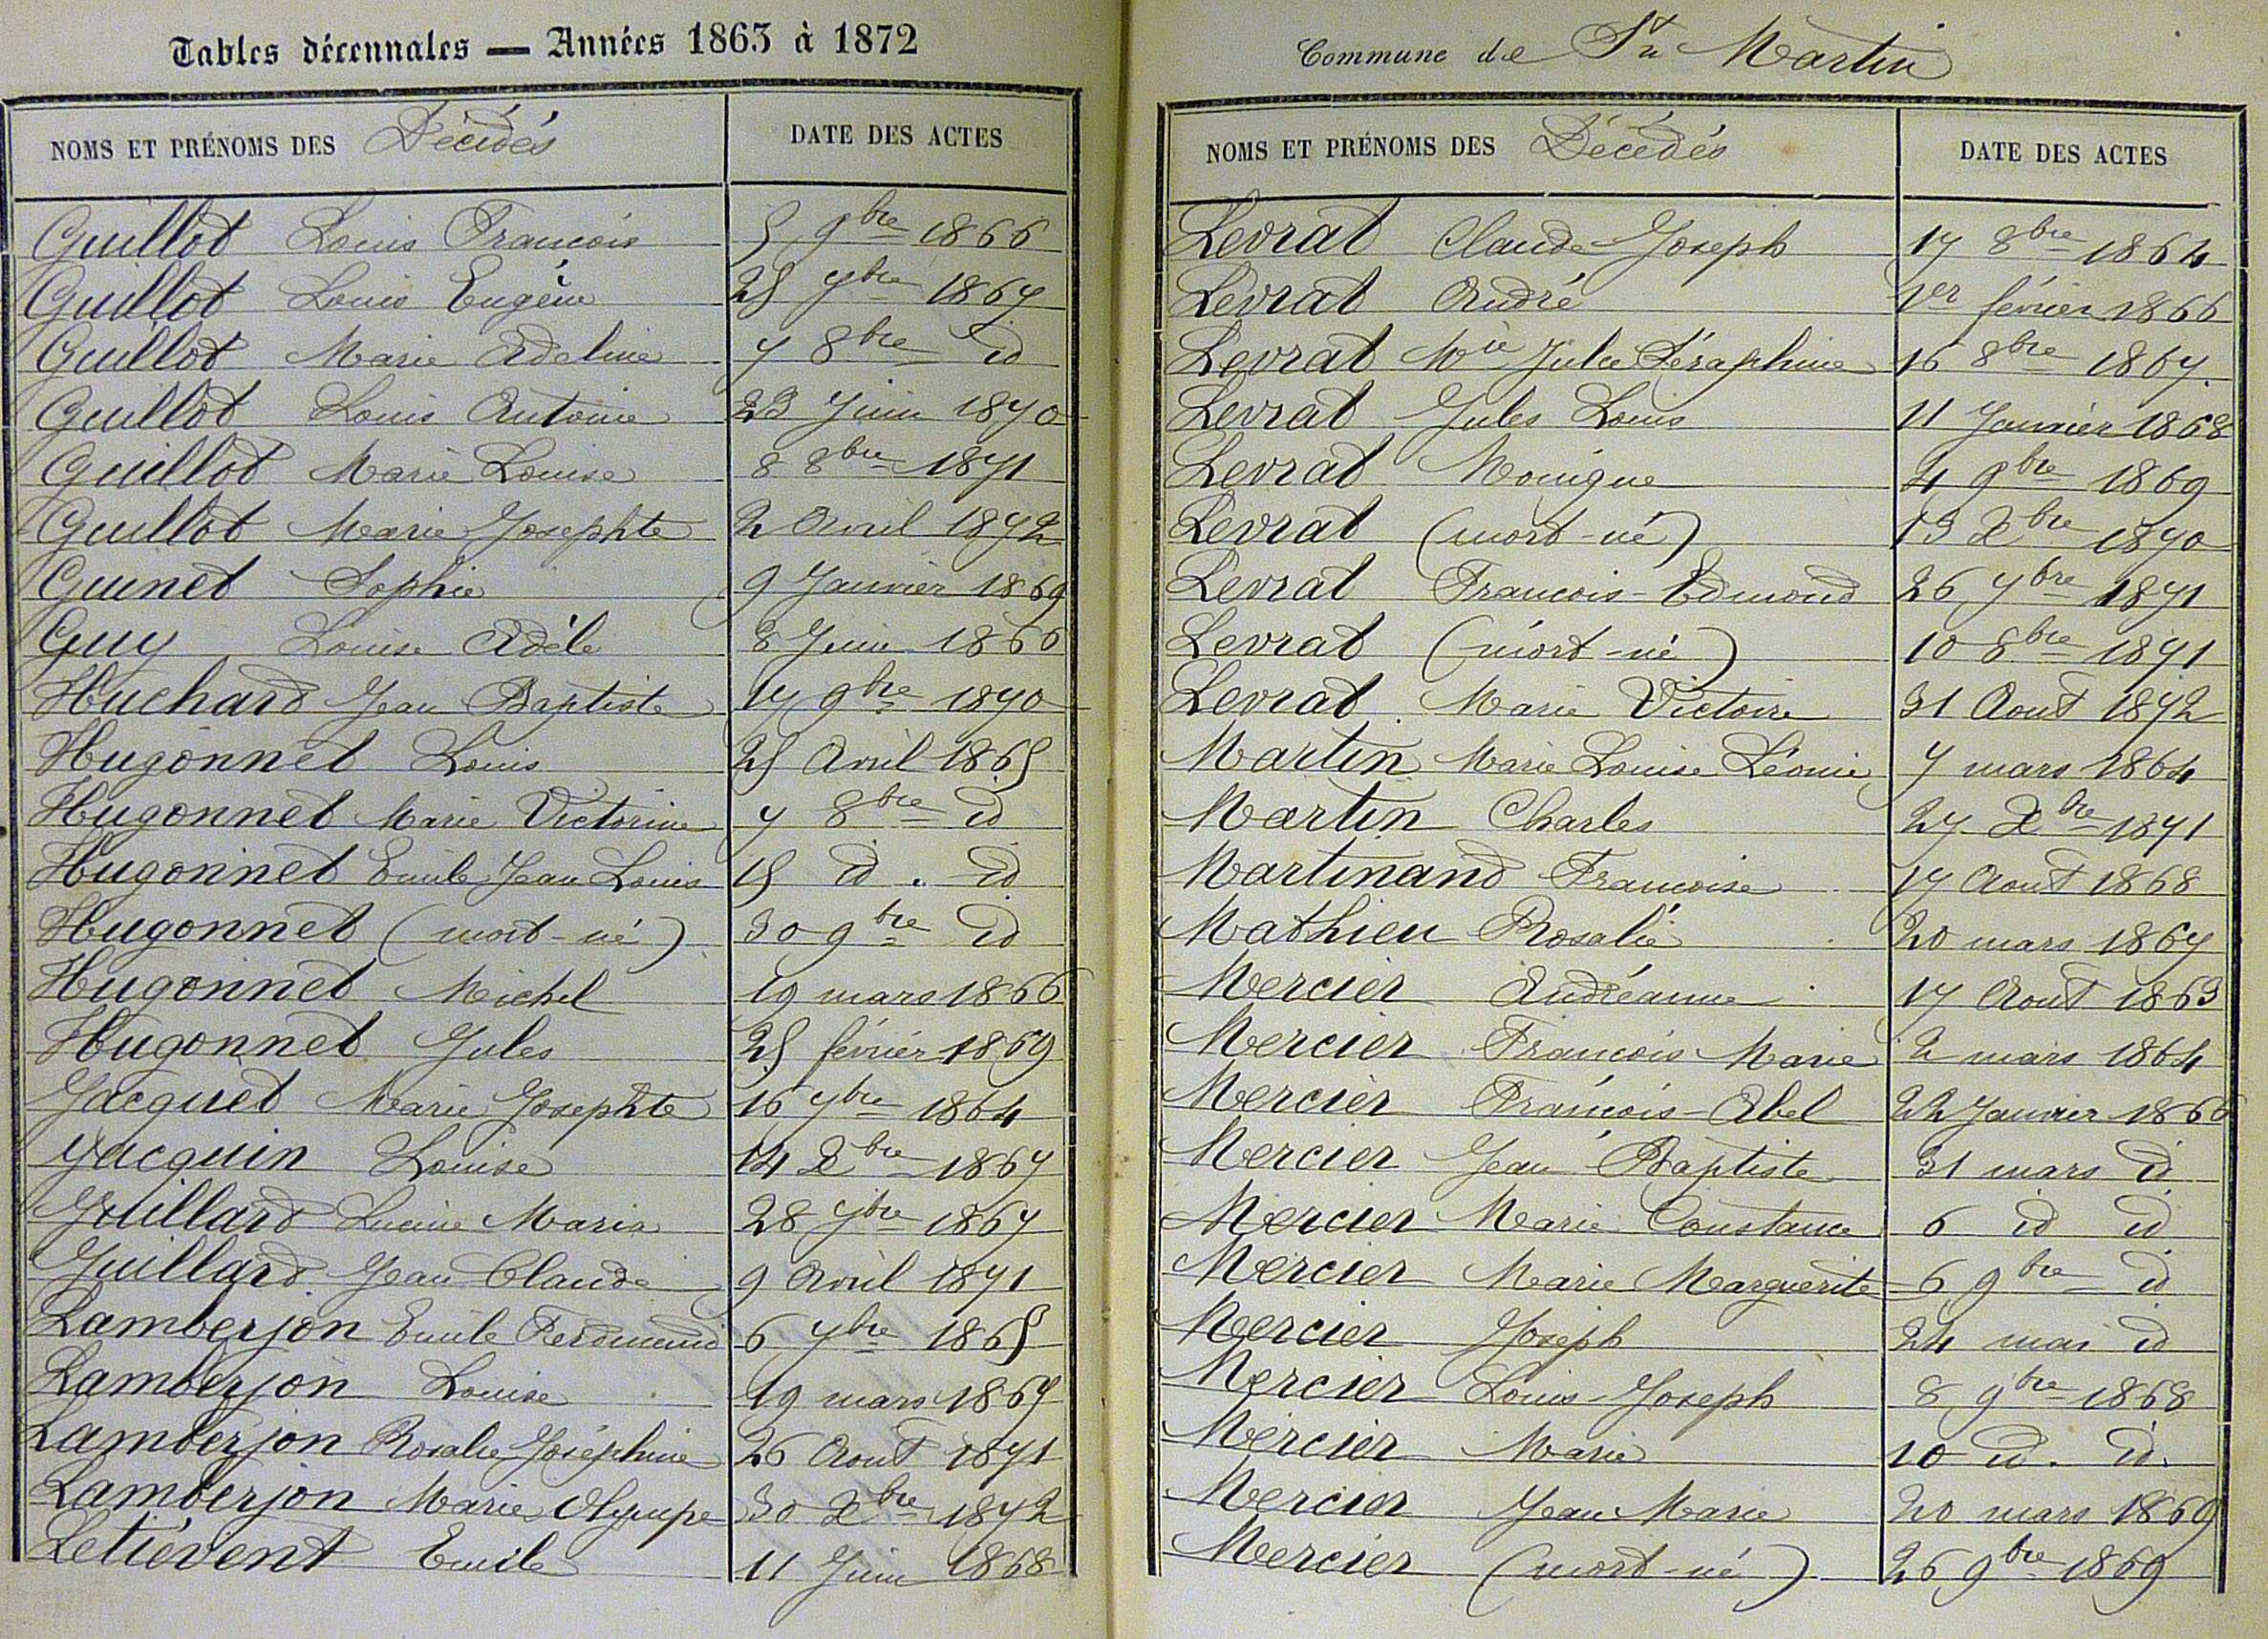 Tables décennales — Années 1863 à 1872
NOMS ET PRÉNOMS DES Décédés DATE DES ACTES
Guillot Louis François 5 9bre 1866
Guillot Louis Eugène 25 7bre 1867
Guillot Marie Adeline 7 8bre id
Guillot Louis Antoine 23 Juin 1870
Guillot Marie Louise 8 8bre 1871
Guillot Marie Josephte 2 Avril 1872
Guinet Sophie 9 Janvier 1869
Guy Louise Adèle 8 Juin 1866
Huchard Jean Baptiste 17 9bre 1870
Hugonnet Louis 25 Avril 1865
Hugonnet Marie Victorine 7 8bre id
Hugonnet Emile Jean Louis 15 id . id
Hugonnet (mort-né) 30 9bre id
Hugonnet Michel 19 mars 1866
Hugonnet Jules 25 février 1869
Jacquet Marie Josephte 16 7bre 1864
Jacquin Louise 14 Xbre 1867
Juillard Lucine Maria 28 7bre 1867
Juillard Jean Claude 9 Avril 1871
Lamberjon Emile Ferdinand 6 7bre 1865
Lamberjon Louise 19 mars 1867
Lamberjon Rosalie Joséphine 26 Aout 1871
Lamberjon Marie Olympe 30 Xbre 1872
Letiévent Emile 11 Juin 1868
Commune de St Martin
NOMS ET PRÉNOMS DES Décédés DATE DES ACTES
Levrat Claude Joseph 17 8bre 1864
Levrat André 1er février 1866
Levrat Mie Julie Séraphine 16 8bre 1867.
Levrat Jules Louis 11 Janvier 1868
Levrat Monique 4 9bre 1869
Levrat (mort-né) 13 Xbre 1870
Levrat François-Edmond 26 7bre 1871
Levrat (mort-né) 10 8bre 1871
Levrat Marie Victoire 31 Aout 1872
Martin Marie Louise Léonie 7 mars 1864
Martin Charles 27 Xbre 1871
Martinand Françoise 17 Aout 1868
Mathieu Rosalie 20 mars 1867
Mercier Andréanne 17 Aout 1863
Mercier François Marie 2 mars 1864
Mercier François-Abel 22 Janvier 1866
Mercier Jean Baptiste 31 mars id
Mercier Marie Constance 6 id id
Mercier Marie Marguerite 6 9bre id
Mercier Joseph 24 mai id
Mercier Louis-Joseph 8 9bre 1868
Mercier Marie 10 id. id.
Mercier Jean Marie 20 mars 1869
Mercier (mort-né) 26 9bre 1869